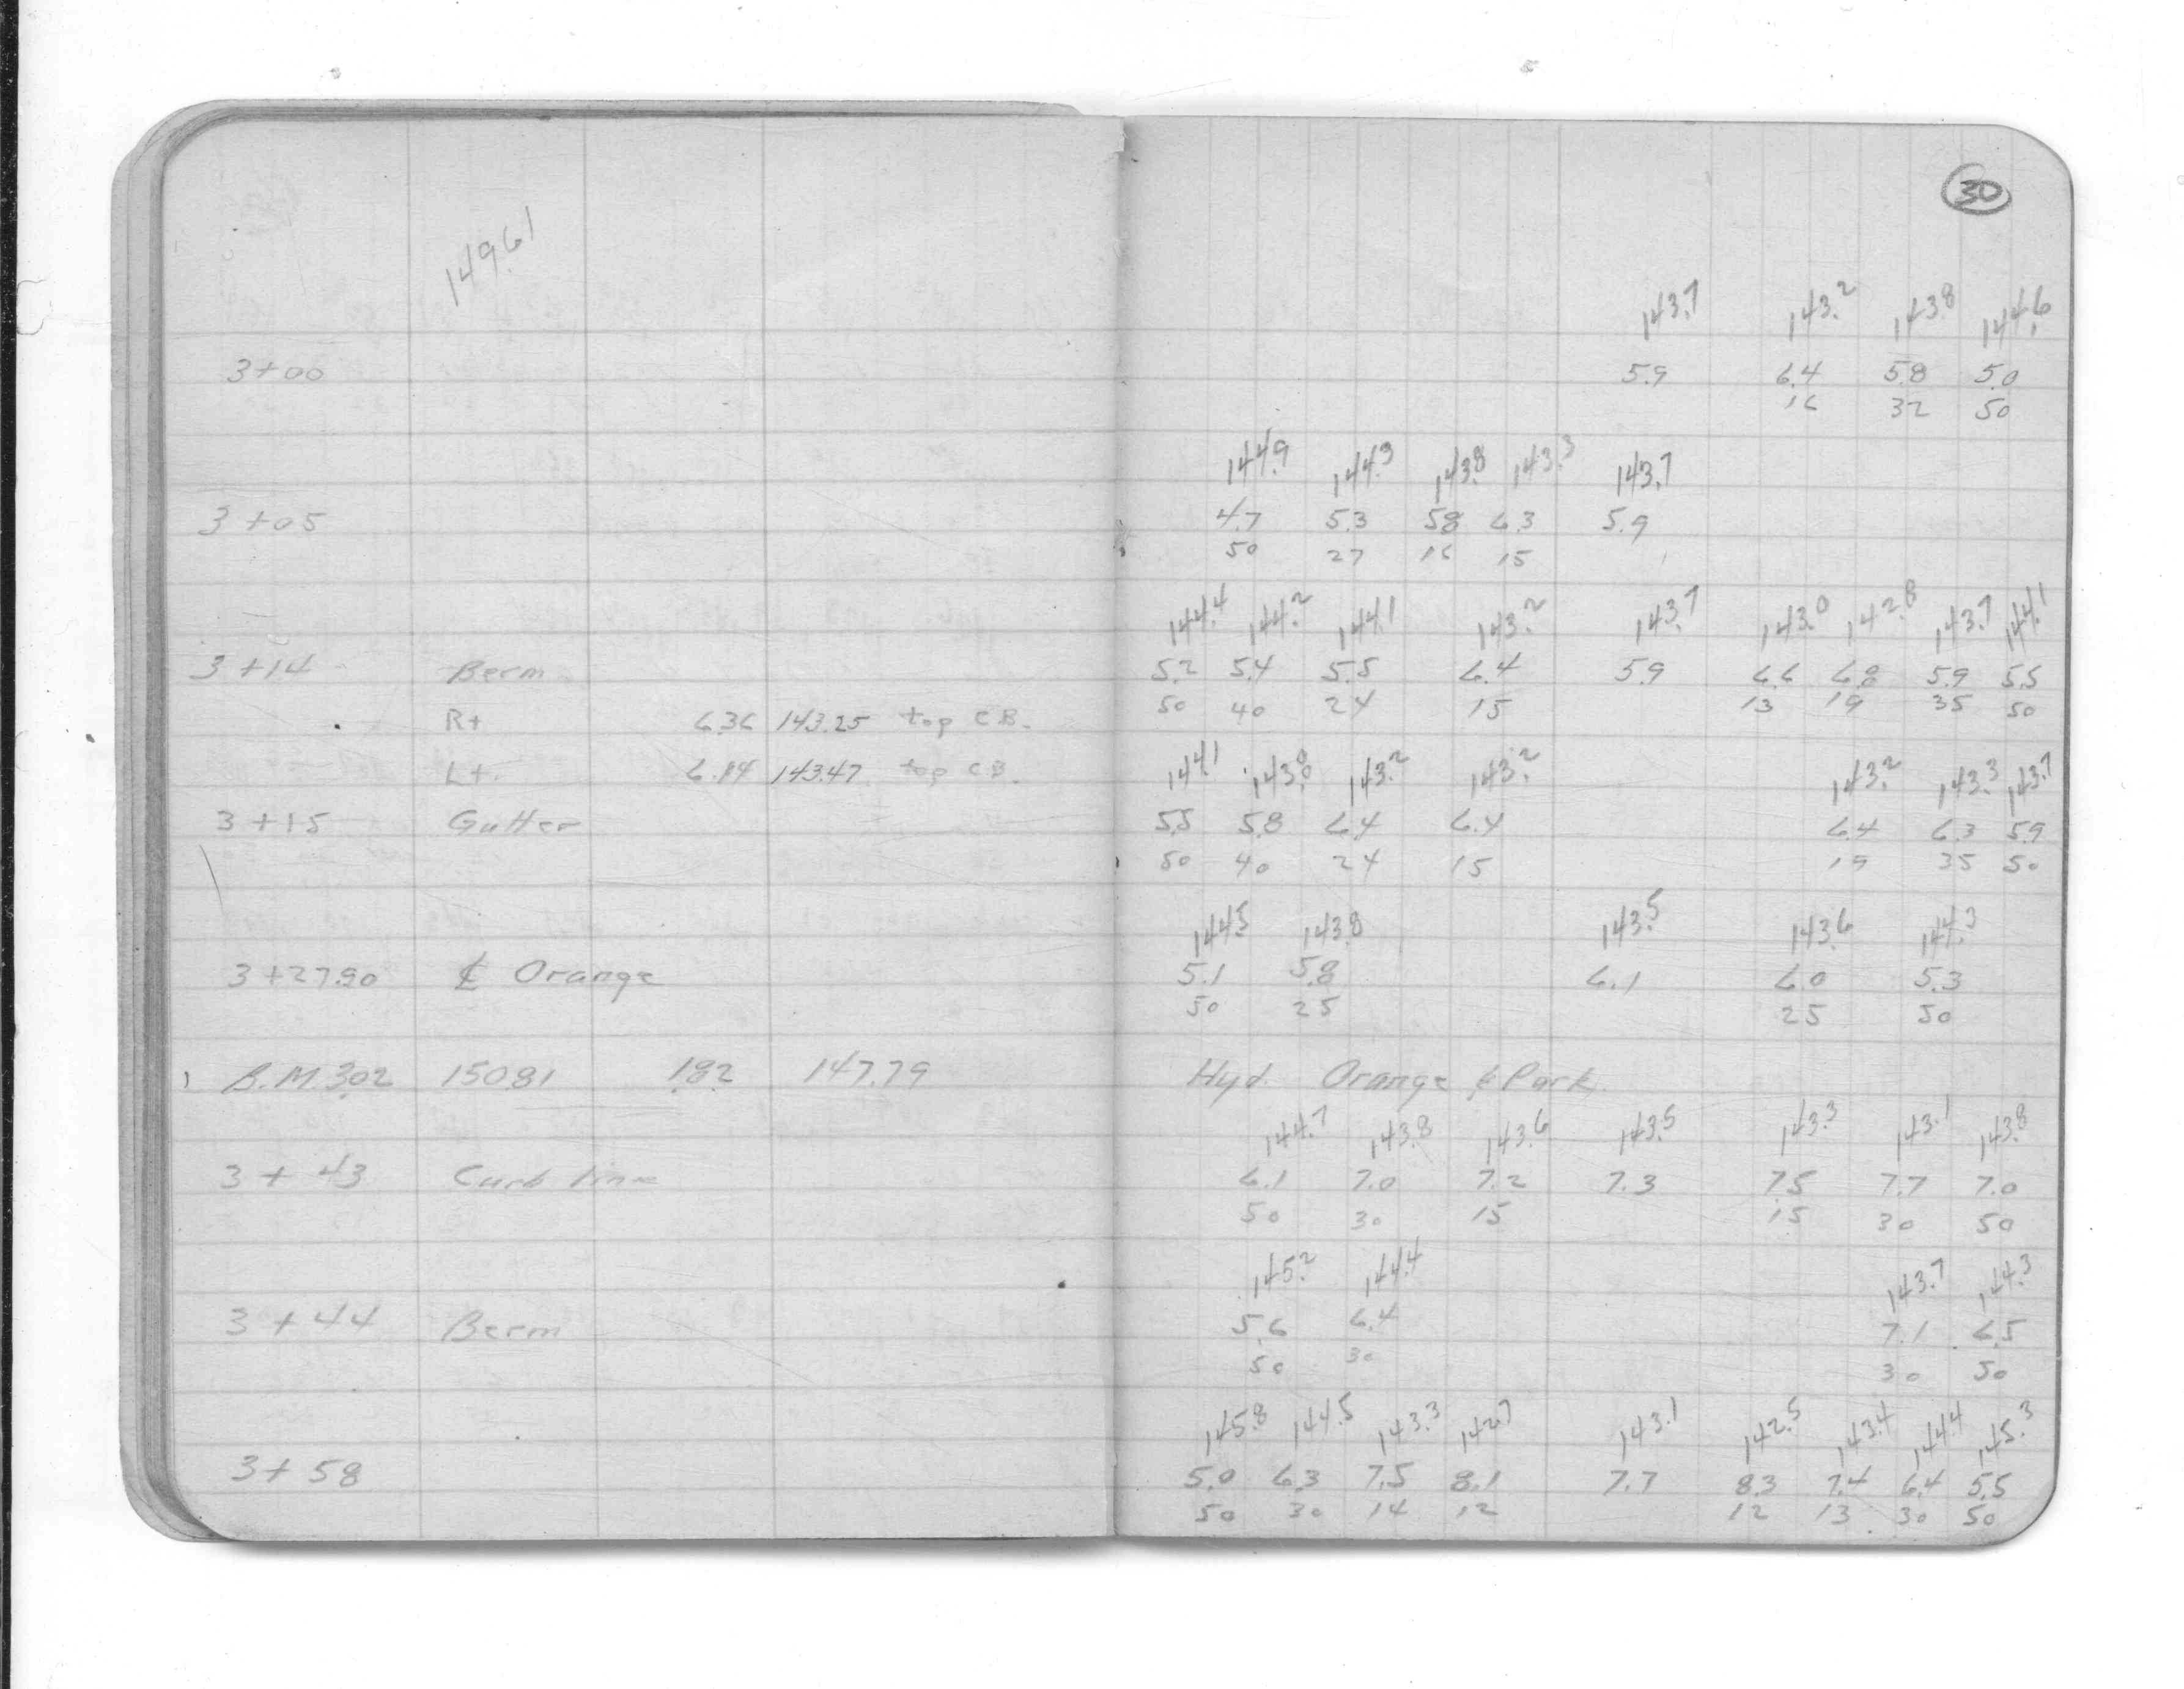 30
149.61
143.7 143.2 143.8 144.6
3+00 5.9 6.4 5.8 5.0
16 32 50
144.9 144.3 143.8 143.3 143.7
3+05 4.7 5.3 5.8 6.3 5.9
50 27 16 15
144.4 144.2 144.1 143.2 143.7 143.0 142.8 143.7 144.1
3+14 Berm 5.2 5.4 5.5 6.4 5.9 6.6 6.8 5.9 5.5
50 40 24 15 13 19 35 50
Rt 6.36 143.25 top C.B.
Lt. 6.14 143.47 top C.B.
144.1 143.8 143.2 143.2 143.2 143.3 143.7
3+15 Gutter 5.5 5.8 6.4 6.4 6.4 6.3 5.9
50 40 24 15 19 35 50
144.5 143.8 143.5 143.6 144.3
3+27.90 ℄ Orange 5.1 5.8 6.1 6.0 5.3
50 25 25 50
B.M.302 150.81 1.82 147.79 Hyd. Orange & Park.
144.7 143.8 143.6 143.5 143.3 143.1 143.8
3+43 Curb line 6.1 7.0 7.2 7.3 7.5 7.7 7.0
50 30 15 15 30 50
145.2 144.4 143.7 144.3
3+44 Berm 5.6 6.4 7.1 6.5
50 30 30 50
145.8 144.5 143.3 142.7 143.1 142.5 143.4 144.4 145.3
3+58 5.0 6.3 7.5 8.1 7.7 8.3 7.4 6.4 5.5
50 30 14 12 12 13 30 50